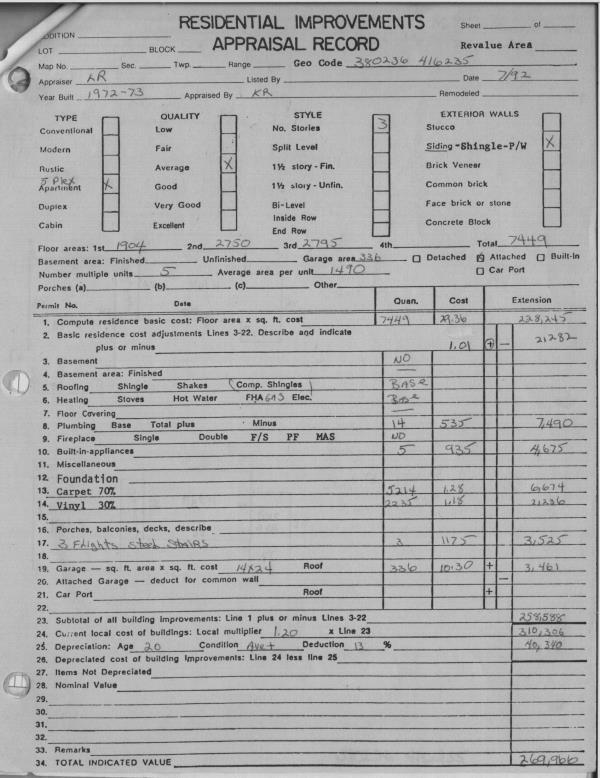 RESIDENTIAL IMPROVEMENTS Sheet of
ADDITION APPRAISAL RECORD
LOT BLOCK Revalue Area
Map No. Sec. Twp. Range Geo Code 380236 416235
Appraiser Listed By Date 7/92
Year Built 1972-73 Appraised By KR Remodeled
TYPE QUALITY STYLE EXTERIOR WALLS
Conventional Low No. Stories 3 Stucco
Modern Fair Split Level Siding-Shingle-P/W X
Rustic Average X 1½ story - Fin. Brick Veneer
5 Plex
Apartment X Good 1½ story - Unfin. Common brick
Duplex Very Good Bi-Level Face brick or stone
Inside Row
Cabin Excellent End Row Concrete Block
Floor areas: 1st 1904 2nd 2750 3rd 2795 4th Total 7449
Basement area: Finished Unfinished Garage area 336 Detached Attached Built-In
Number multiple units 5 Average area per unit 1490 Car Port
Porches (a) (b) (c) Other
Permit No. Date Quan. Cost Extension
1. Compute residence basic cost: Floor area x sq. ft. cost 7449 29.36 228,245
2. Basic residence cost adjustments Lines 3-22. Describe and indicate
plus or minus 1.01 + - 2,282
3. Basement NO
4. Basement area: Finished
5. Roofing Shingle Shakes Comp. Shingles BASE
6. Heating Stoves Hot Water FHA GAS Elec. BASE
7. Floor Covering
8. Plumbing Base Total plus Minus 14 535 7,490
9. Fireplace Single Double F/S PF MAS NO
10. Built-in-appliances 5 935 4,675
11. Miscellaneous
12. Foundation
13. Carpet 70% 5214 1.28 6,674
14. Vinyl 30% 2235 1.18
15.
16. Porches, balconies, decks, describe
17. 3 Flights Steel Stairs 3 1175 3,525
18.
19. Garage — sq. ft. area x sq. ft. cost 14x24 Roof 336 10.30 + 3,461
20. Attached Garage — deduct for common wall -
21. Car Port Roof +
22.
23. Subtotal of all building improvements: Line 1 plus or minus Lines 3-22 258,588
24. Current local cost of buildings: Local multiplier 1.20 x Line 23 310,306
25. Depreciation: Age 20 Condition Ave+ Deduction 13 % 40,340
26. Depreciated cost of building improvements: Line 24 less line 25
27. Items Not Depreciated
28. Nominal Value
29.
30.
31.
32.
33. Remarks
34. TOTAL INDICATED VALUE 269,966